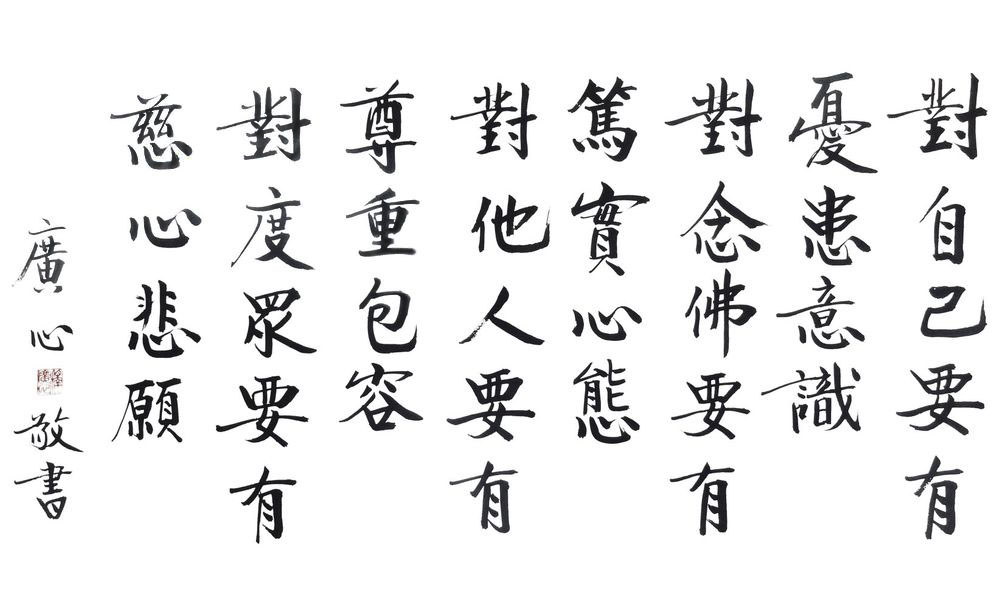 對自己要有
憂患意識
對念佛要有
篤實心態
對他人要有
尊重包容
對度眾要有
慈心悲願
廣心敬書